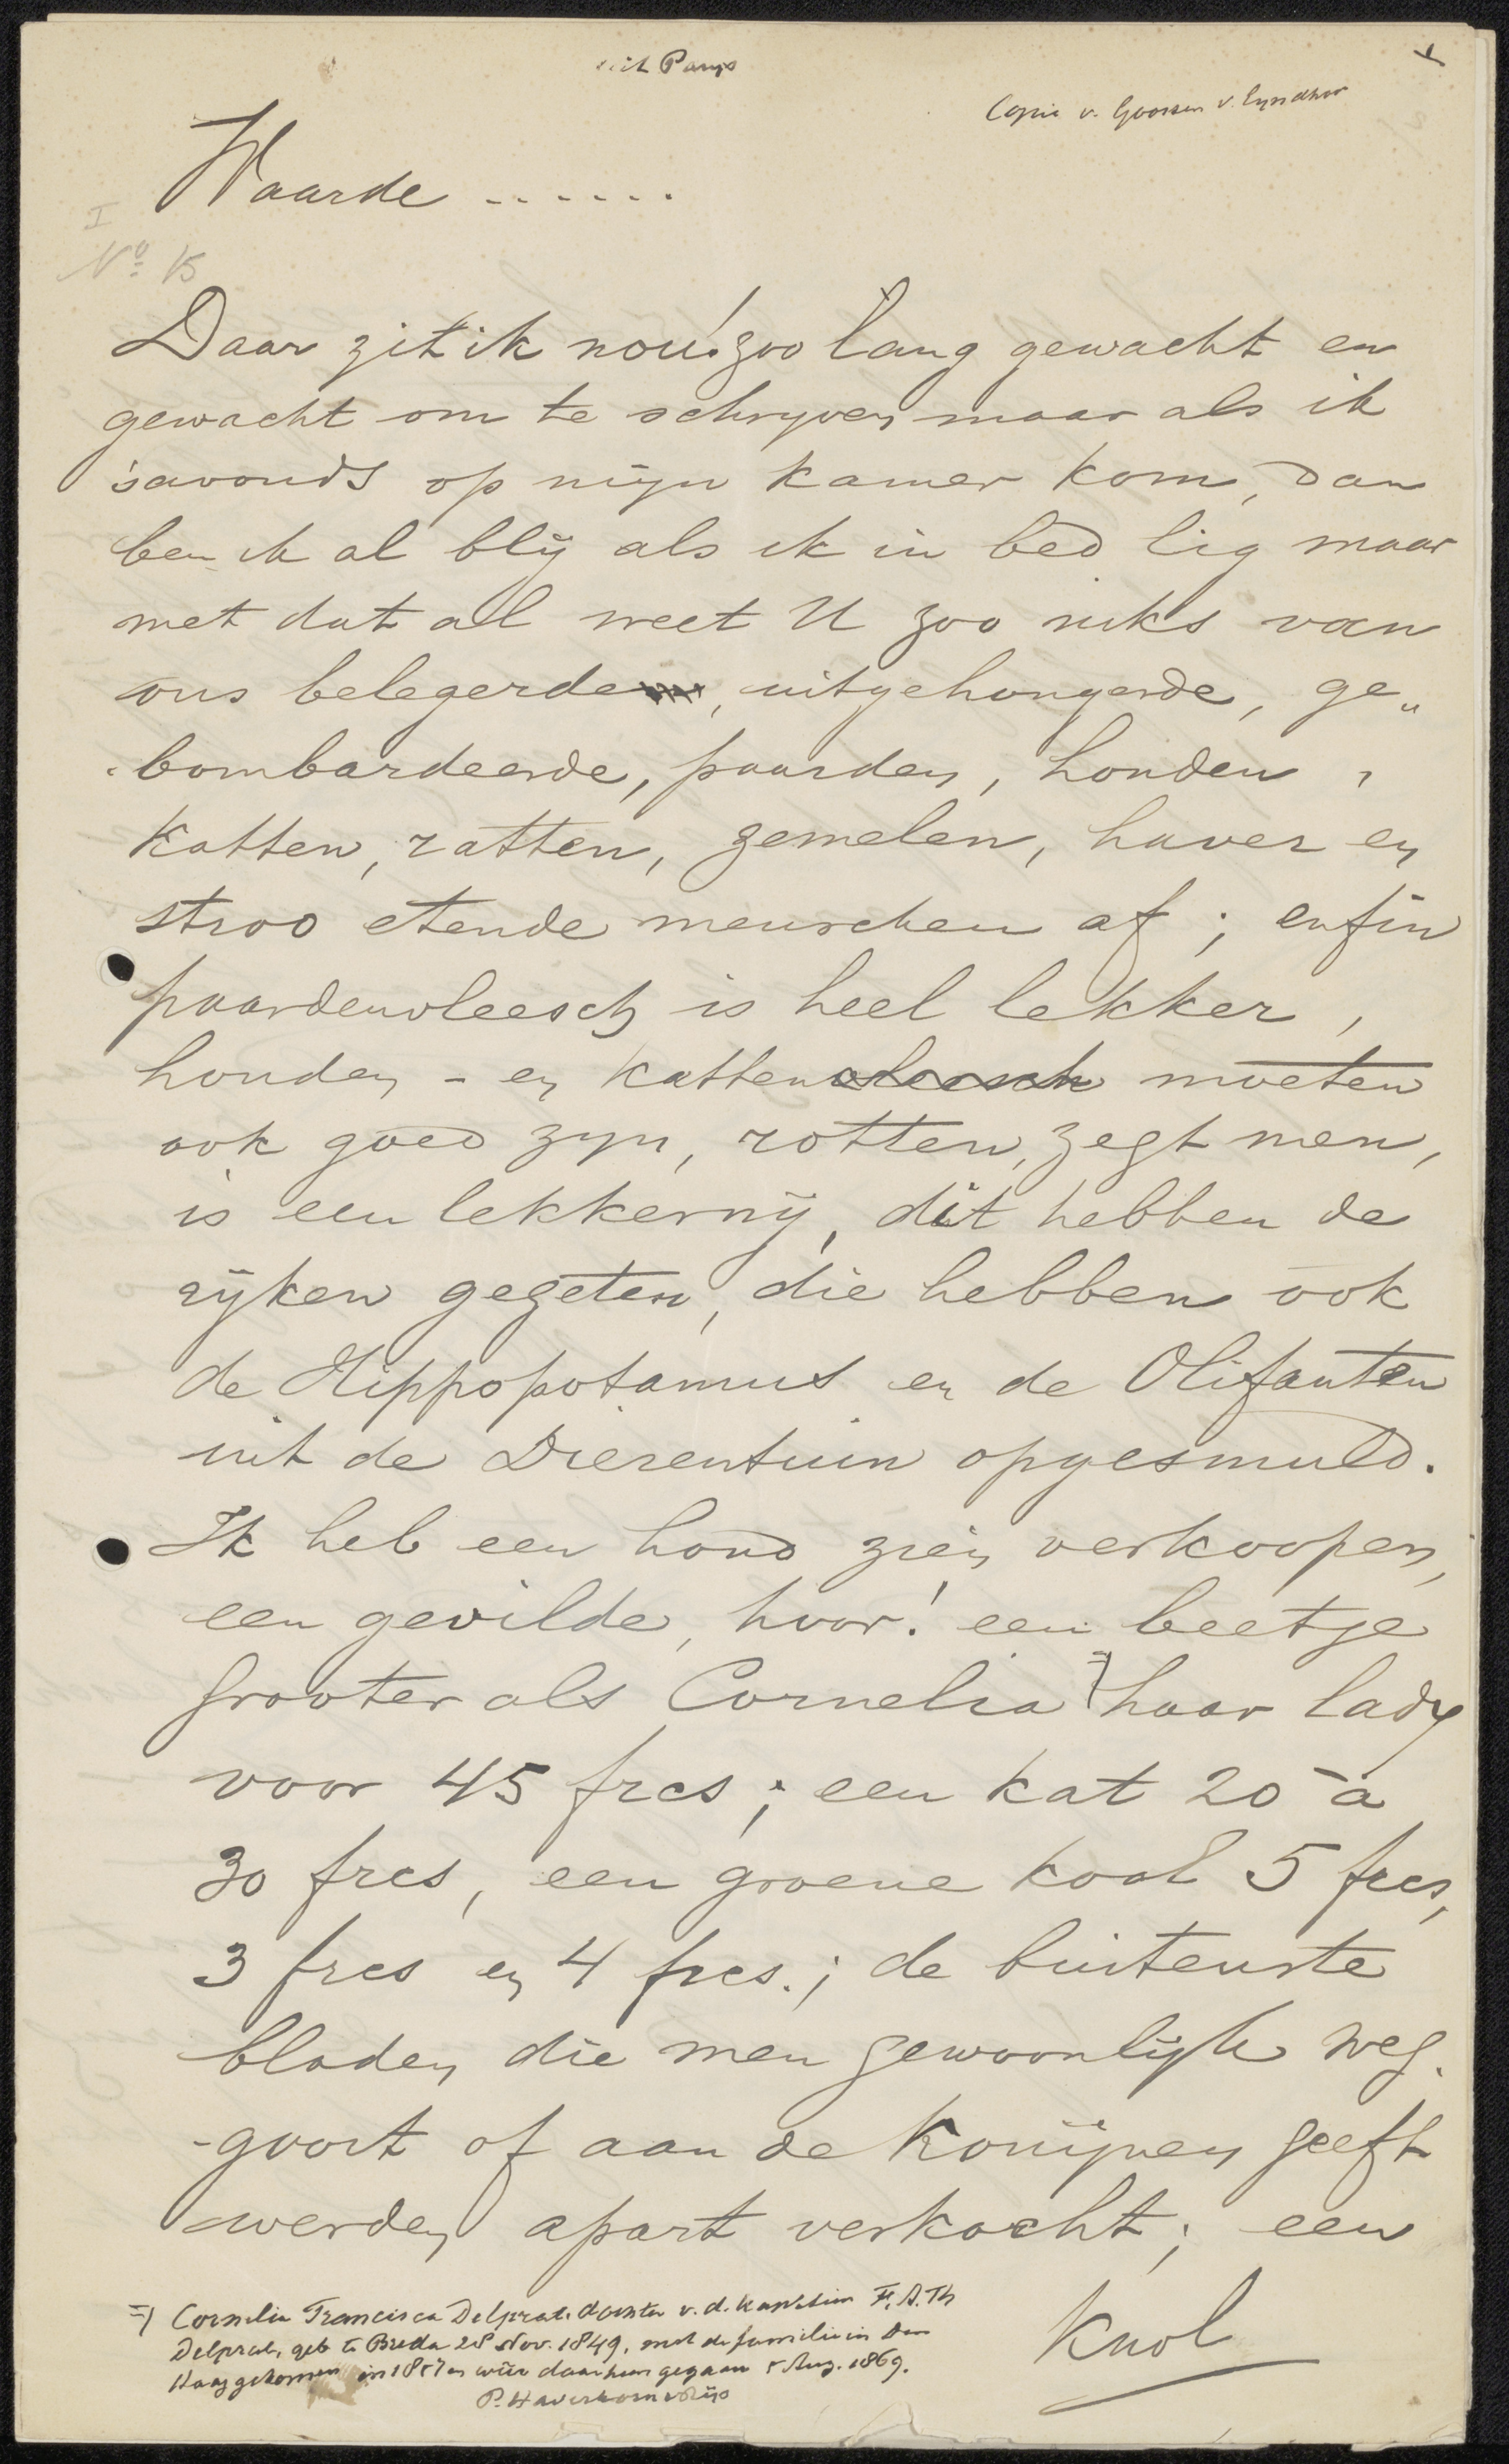 uit Parys
Copie v. Goossen v.
Waarde ......
I
No
Daar zit ik nou! zoo lang gewacht en
gewacht om te schryven maar als ik
'savonds op mijn kamer kom, dan
ben ik al blij als ik in bed lig maar
met dat al weet U zoo niks van
ons belegerde, uitgehongerde, ge„
-bombardeerde, paarden, honden,
Katten, ratten, zemelen, haver en
stroo etende menschen af; enfin
paardenvleesch is heel lekker,
honden - en katten vleesch moeten
ook goed zyn, rotten, zegt men,
is een lekkernij, dit hebben de
rijken gegeten, die hebben ook
de Hippopotamus en de Olifanten
uit de Dierentuin opgesmuld.
Ik heb een hond zien verkoopen,
een gevilde, hoor! een beetje
grooter als Cornelia =) haar lady
voor 45 frcs; een kat 20 à
30 frcs, een groene kool 5 frcs,
3 frcs en 4 frcs.; de buitenste
bladen die men gewoonlijk weg-
-gooit of aan de Konijnen geeft
werden apart verkocht; een
Knol
=) Cornelia Francisca Delprat, dochter v. d. Kapitein F. A. Th
Delprat, geb te Breda 28 Nov. 1849, met de familie in Den
Haag gekomen in 1857 en weer daar heen gegaan 5 Aug. 1869.
P. Haverkorn v Rijs